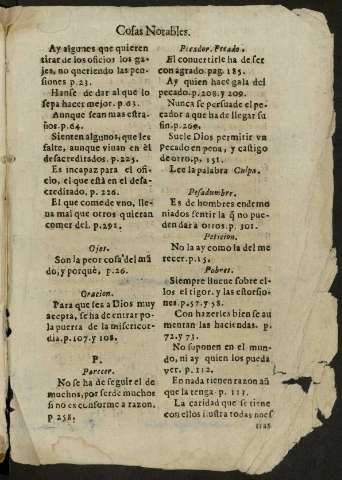 Cosas Notables.
Ay algunos que quieren
tirar de los oficios los ga-
jes, no queriendo las pen-
siones p.23.
Hanse de dar al que lo
sepa hacer mejor. p.63.
Aunque sean mas estra-
ños. p.64.
Sienten algunos, que les
falte, aunque vivan en él
desacreditados. p.225.
Es incapaz para el ofi-
cio, el que está en el desa-
creditado. p.226.
El que come de vno, lle-
na mal que otros quieran
comer del. p.291.
Ojos.
Son la peor cosa del mũ
do, y porquè, p.26.
Oracion.
Para que sea a Dios muy
acepta, se ha de entrar po
la puerta de la misericor-
dia. p.107. y 108.
P.
Parecer.
No se ha de seguir el de
muchos, por ser de muchos
si no es conforme a razon.
p 258.
Pecador. Pecado.
El conuertirle ha de ser
con agrado. pag. 185.
Ay quien hace gala del
pecado. p.208. y 209.
Nunca se persuade el pe-
cador a que ha de llegar su
fin. p.269.
Suele Dios permitir vn
pecado en pena, y castigo
de otro. p. 151.
Lee la palabra Culpa.
Pesadumbre.
Es de hombres endemo
niados sentir la q̃ no pue-
den dar a otros. p. 301.
Peticion.
No la ay como la del me
recer. p.15.
Pobres.
Siempre llueue sobre el-
los el rigor, y las estorsio-
nes. p.57. y 58.
Con hazerles bien se au
mentan las haciendas. p.
72. y 73.
No suponen en el mun-
do, ni ay quien los pueda
ver. p.112.
En nada tienen razon aũ
que la tenga. p. 113.
La caridad que se tiene
con ellos ilustra todas nues
tras